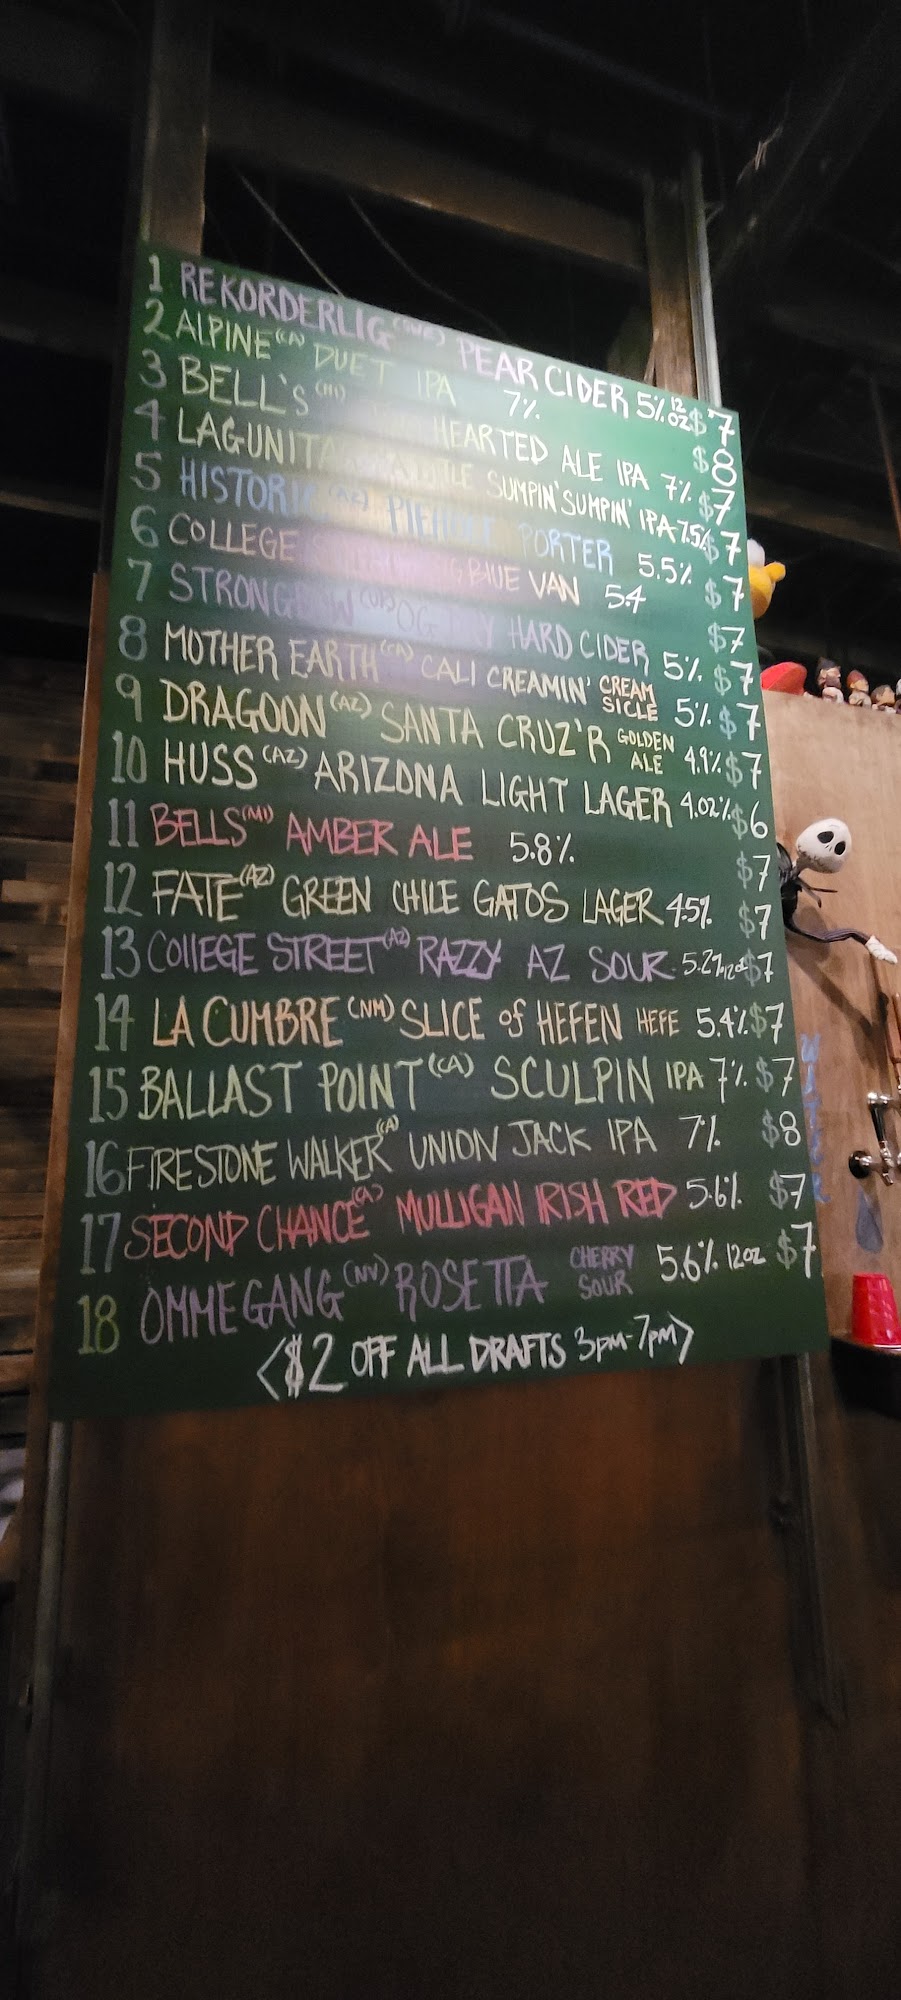 1 REKORDERLIG (SWE) PEAR CIDER 5% 12 OZ $7
2 ALPINE (CA) DUET IPA 7% $8
3 BELL'S (MI) HEARTED ALE IPA 7% $7
4 LAGUNITAS SUMPIN' SUMPIN' IPA 7.5% $7
5 HISTORIC (AZ) PIEHOLE PORTER 5.5% $7
6 COLLEGE BIG BLUE VAN 5.4 $7
7 STRONGBOW (UK) OG DRY HARD CIDER 5% $7
8 MOTHER EARTH (CA) CALI CREAMIN' CREAM SICLE 5% $7
9 DRAGOON (AZ) SANTA CRUZ'R GOLDEN ALE 4.9% $7
10 HUSS (AZ) ARIZONA LIGHT LAGER 4.02% $6
11 BELLS (MI) AMBER ALE 5.8% $7
12 FATE (AZ) GREEN CHILE GATOS LAGER 4.5% $7
13 COllEGE STREET (AZ) RAZZY AZ SOUR 5.2% 12oz $7
14 LA CUMBRE (NM) SLICE of HEFEN HEFE 5.4% $7
15 BALLAST POINT (CA) SCULPIN IPA 7% $7
16 FIRESTONE WALKER (CA) UNION JACK IPA 7% $8
17 SECOND CHANCE (CA) MULLIGAN IRISH RED 5.6% $7
18 OMMEGANG (NV) ROSETTA CHERRY SOUR 5.6% 12oz $7
<$2 OFF ALL DRAFTS 3pm-7pm>